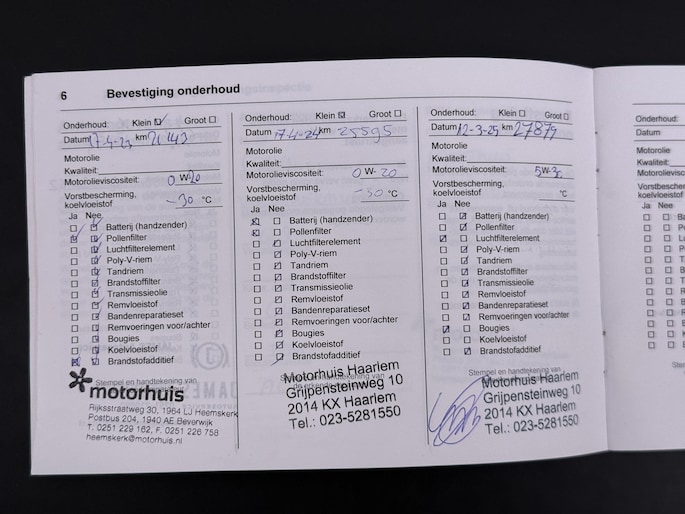 6 Bevestiging onderhoud
Onderhoud: Klein Groot
Datum 17-4-23 km 21143
Motorolie
Kwaliteit:
Motorolieviscositeit: 0 W- 20
Vorstbescherming,
koelvloeistof -30 °C
Ja Nee
Batterij (handzender)
Pollenfilter
Luchtfilterelement
Poly-V-riem
Tandriem
Brandstoffilter
Transmissieolie
Remvloeistof
Bandenreparatieset
Remvoeringen voor/achter
Bougies
Koelvloeistof
Brandstofadditief
Stempel en handtekening van
motorhuis
Rijksstraatweg 30, 1964 LJ Heemskerk
Postbus 204, 1940 AE Beverwijk
T. 0251 229 162, F. 0251 226 758
heemskerk@motorhuis.nl
Onderhoud: Klein Groot
Datum 17-4-24 km 25595
Motorolie
Kwaliteit:
Motorolieviscositeit: 0 W- 20
Vorstbescherming,
koelvloeistof -30 °C
Ja Nee
Batterij (handzender)
Pollenfilter
Luchtfilterelement
Poly-V-riem
Tandriem
Brandstoffilter
Transmissieolie
Remvloeistof
Bandenreparatieset
Remvoeringen voor/achter
Bougies
Koelvloeistof
Brandstofadditief
Motorhuis Haarlem
Grijpensteinweg 10
2014 KX Haarlem
Tel.: 023-5281550
Onderhoud: Klein Groot
Datum 12-3-25 km 27879
Motorolie
Kwaliteit:
Motorolieviscositeit: 5 W- 30
Vorstbescherming,
koelvloeistof °C
Ja Nee
Batterij (handzender)
Pollenfilter
Luchtfilterelement
Poly-V-riem
Tandriem
Brandstoffilter
Transmissieolie
Remvloeistof
Bandenreparatieset
Remvoeringen voor/achter
Bougies
Koelvloeistof
Brandstofadditief
Stempel en handtekening van
Motorhuis Haarlem
Grijpensteinweg 10
2014 KX Haarlem
Tel.: 023-5281550
Onderhoud:
Datum
Motorolie
Kwaliteit:
Motorolieviscosit
Vorstbescherming
koelvloeistof
Ja Nee